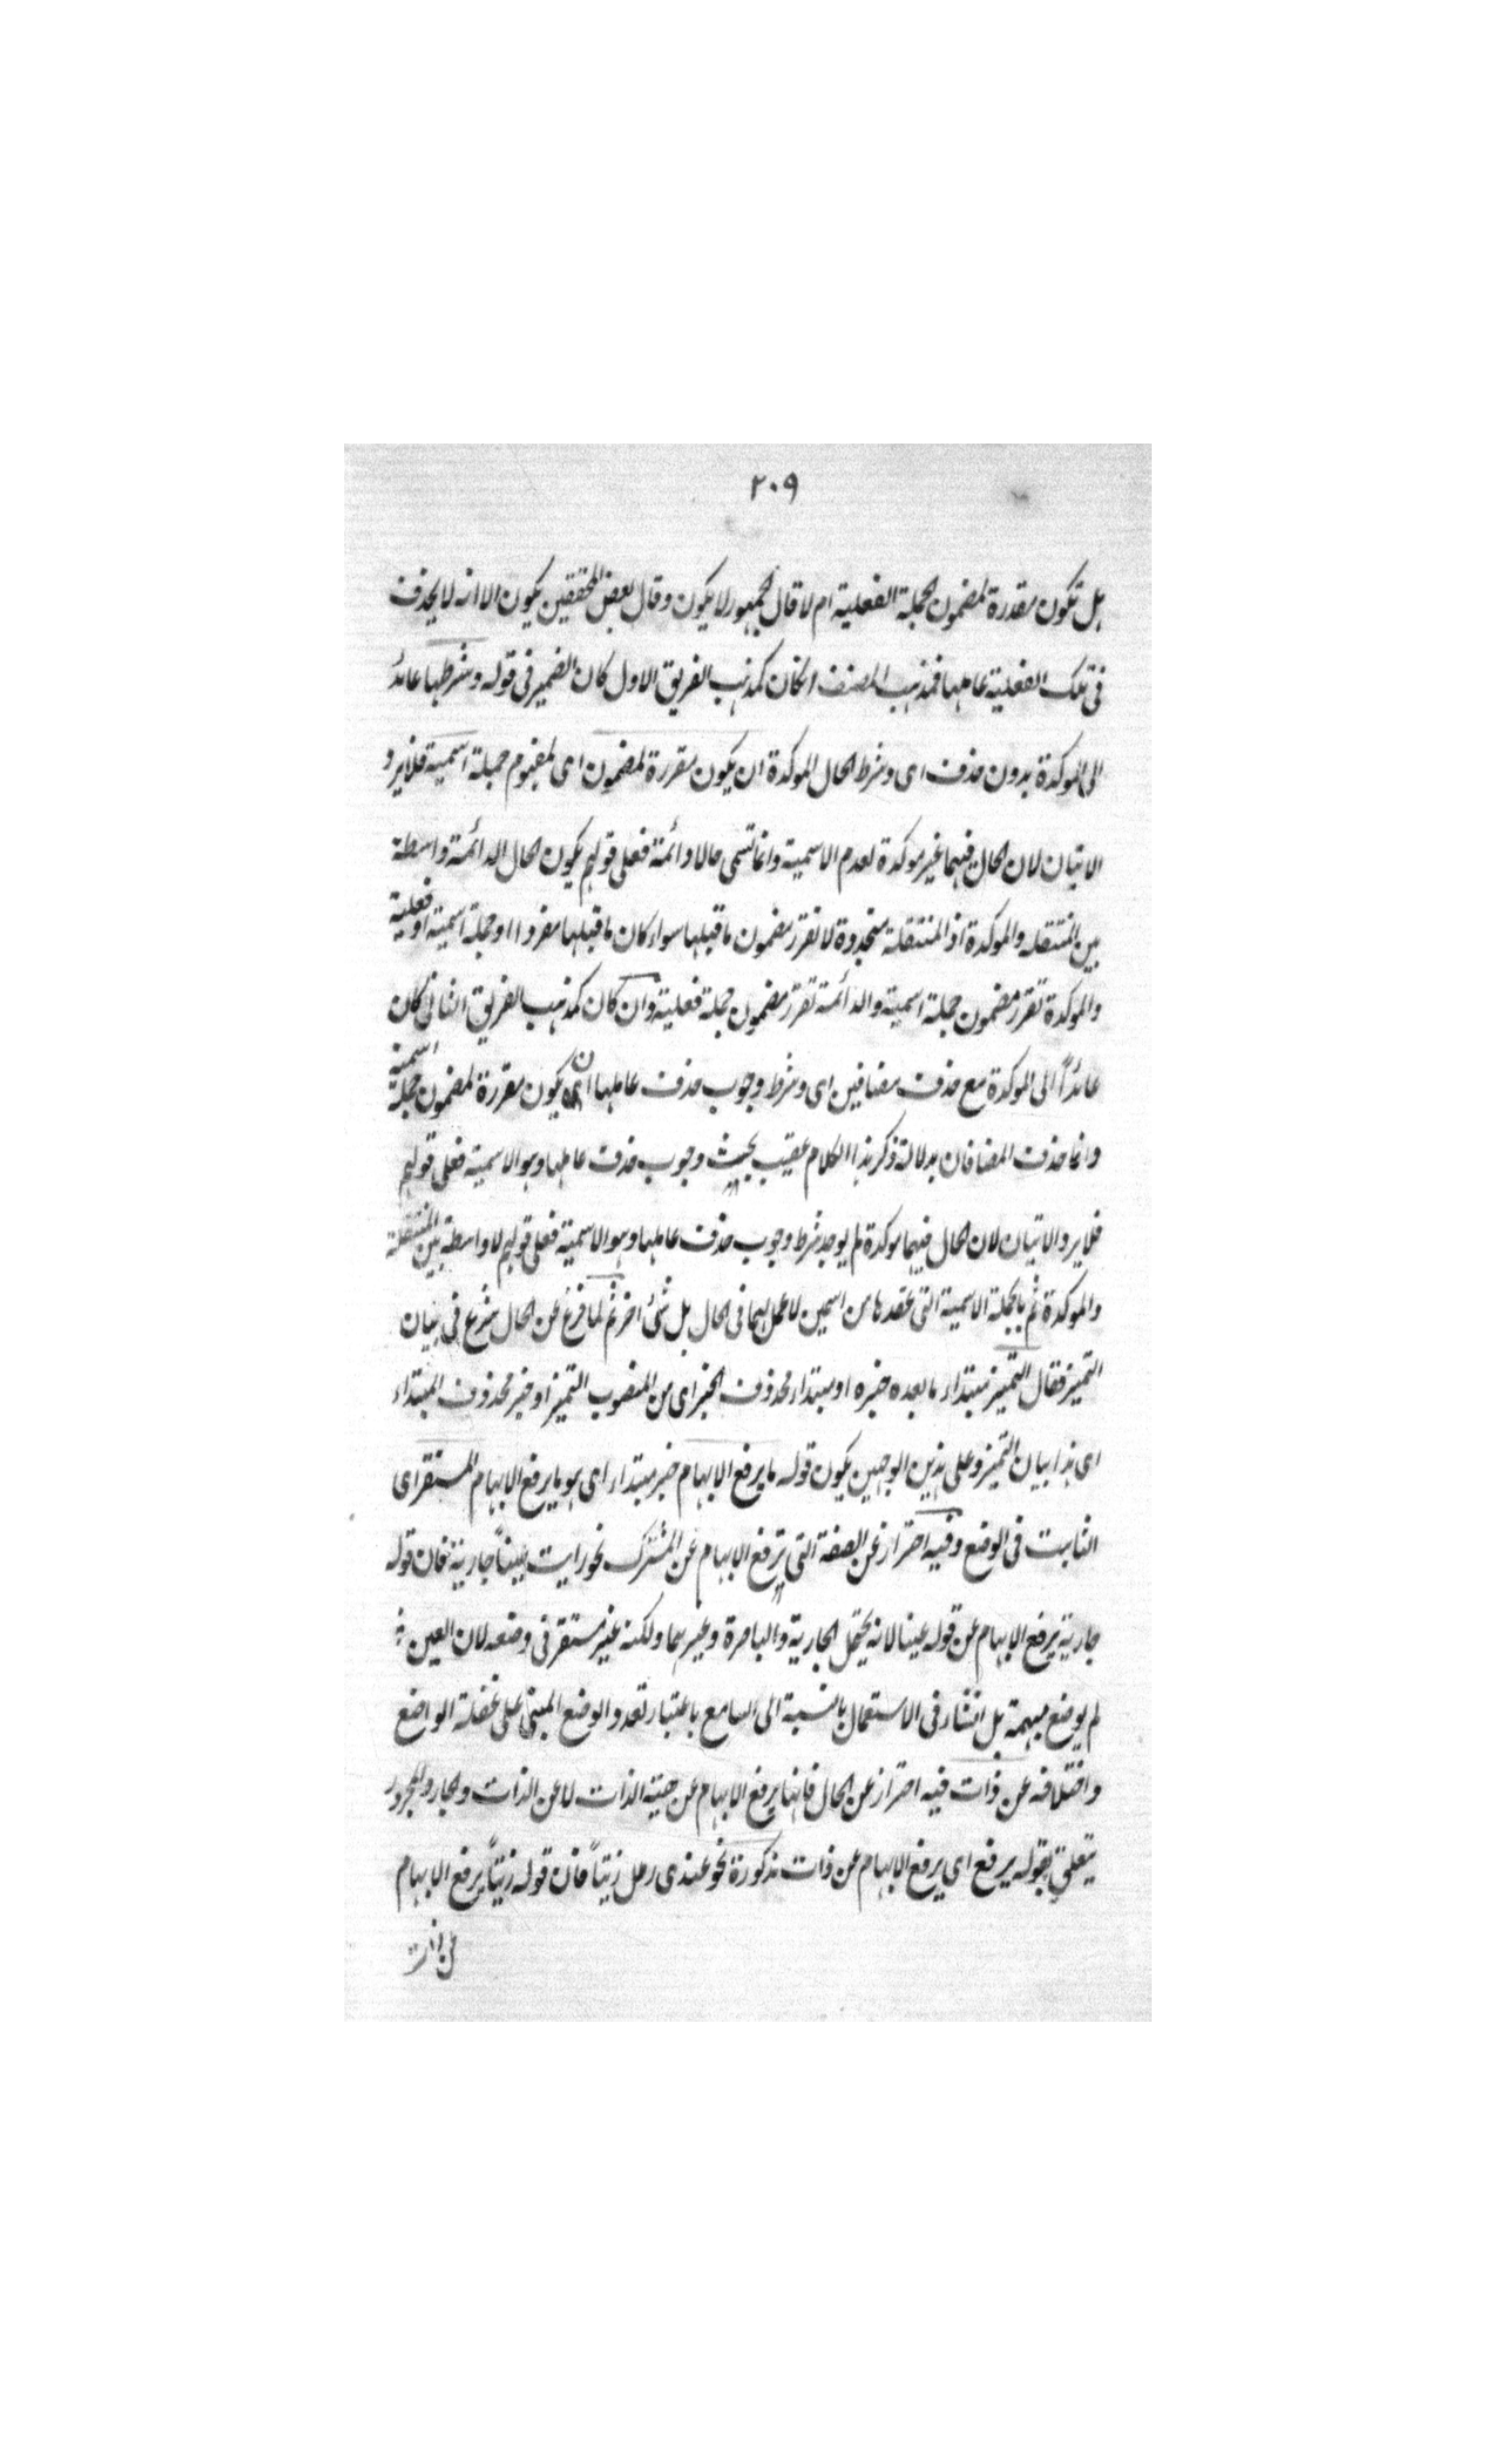 ٢٠٩
هل تكون مقدرة لمضمون الجملة الفعلية ام لا قال الجمهور لا يكون وقال بعض المحققين يكون الا انه لا يحذف
فى تلك الفعلية عاملها فمذهب المصنف انكان كمذهب الفريق الاول كان الضمير فى قوله وشرطها عائد
الى الموكدة بدون حذف اى وشرط الحال الموكدة ان يكون مقررة لمضمون اى لمفهوم جملة اسمية فلا يرد
الاتيان لان الحال فيهما غير موكدة لعدم الاسمية وانما تسمى حالا دائمة فعلى قولهم يكون الحال الدائمة واسطة
بين المنتقله والموكدة اذ المنتقلة متجددة لا تقرر مضمون ما قبلها سواء كان ما قبلها مفردا او جملة اسمية او فعلية
والموكدة تقرر مضمون جملة اسمية والدائمة تقرر مضمون جملة فعلية وان كان كمذهب الفريق الثانى كان
عائداً الى الموكدة مع حذف مضافين اى وشرط وجوب حذف عاملها ان يكون مقررة لمضمون جملة اسمية
وانما حذف المضافان بدلالة ذكر هذا الكلام عقيب بحث وجوب حذف عاملها وهو الاسمية فعلى قولهم
فلا يرد الاتيان لان الحال فيهما موكدة لم يوجد شرط وجوب حذف عاملها وهو الاسمية فعلى قولهم لا واسطة بين المنتقلة
والموكدة ثم بالجملة الاسمية التى عقدها من اسمين لا عمل لهما فى الحال بل شئ اخر ثم لما فرغ عن الحال شرع فى بيان
التميز فقال التمييز مبتداء ما بعده خبره او مبتداء محذوف الخبر اى من المنصوب التميز او خبر محذوف المبتداء
اى هذا بيان التميز وعلى هذين الوجهين يكون قوله ما يرفع الابهام خبر مبتداء اى هو ما يرفع الابهام المستقر اى
الثابت فى الوضع وفيه احتراز عن الصفة التى ترفع الابهام عن المشترك نحو رايت عيناً جارية فان قوله
جارية يرفع الابهام عن قوله عينا لانه يحتمل الجارية والباصرة وغيرهما ولكنه غير مستقر فى وضعه لان العين
لم يوضع مبهمة بل انتشار فى الاستعمال بالنسبة الى السامع باعتبار تعدد الوضع المبنى على غفلة الواضع
واختلافه عن ذات فيه احتراز عن الحال فانها يرفع الابهام عن هيئة الذات لا عن الذات والجار والمجرور
يتعلق بقوله يرفع اى يرفع الابهام عن ذات مذكورة نحو عندى رطل زيتاً فان قوله زيتاً يرفع الابهام